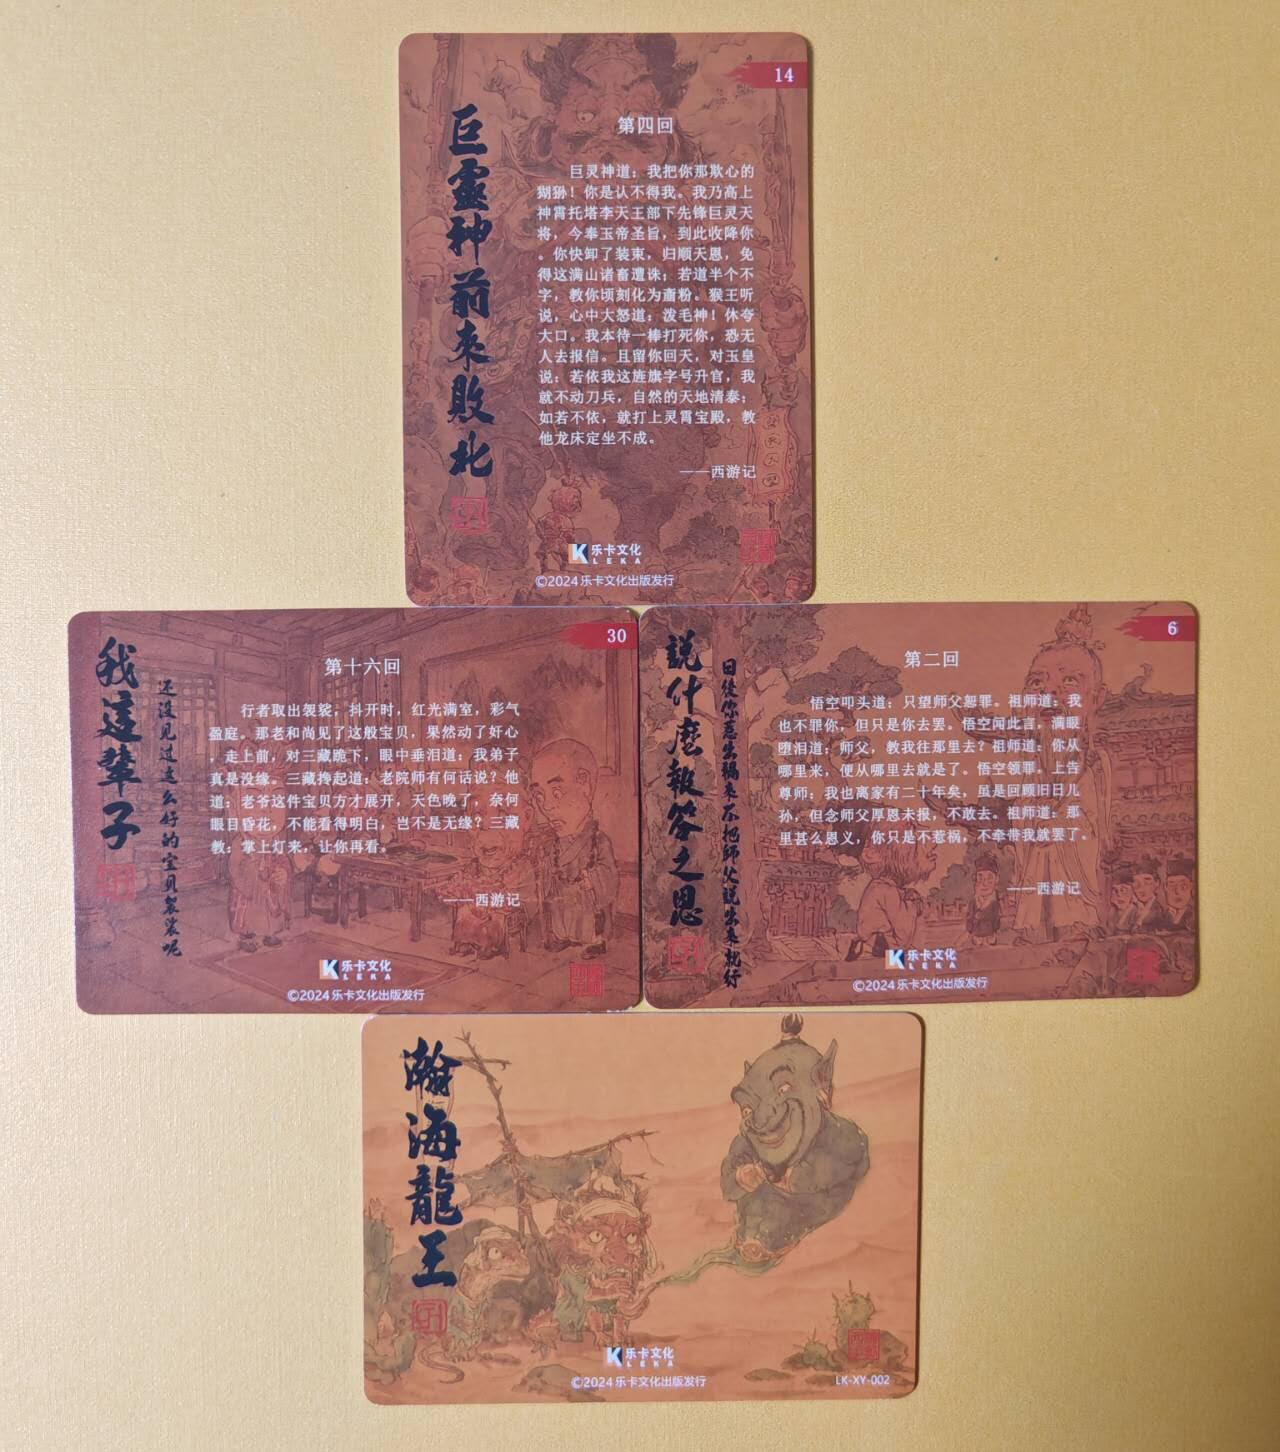 14
巨靈神前來敗北
第四回
巨灵神道：我把你那欺心的
猢狲！你是认不得我。我乃高上
神霄托塔李天王部下先锋巨灵天
将，今奉玉帝圣旨，到此收降你
。你快卸了装束，归顺天恩，免
得这满山诸畜遭诛；若道半个不
字，教你顷刻化为齑粉。猴王听
说，心中大怒道：泼毛神！休夸
大口。我本待一棒打死你，恐无
人去报信。且留你回天，对玉皇
说：若依我这旌旗字号升官，我
就不动刀兵，自然的天地清泰；
如若不依，就打上灵霄宝殿，教
他龙床定坐不成。
——西游记
乐卡文化
LEKA
©2024乐卡文化出版发行
30
我這輩子
还没见过这么好的宝贝袈裟呢
第十六回
行者取出袈裟，抖开时，红光满室，彩气
盈庭。那老和尚见了这般宝贝，果然动了奸心
，走上前，对三藏跪下，眼中垂泪道：我弟子
真是没缘。三藏搀起道：老院师有何话说？他
道：老爷这件宝贝方才展开，天色晚了，奈何
眼目昏花，不能看得明白，岂不是无缘？三藏
教：掌上灯来，让你再看。
——西游记
乐卡文化
LEKA
©2024乐卡文化出版发行
6
説什麼報答之恩
日後你惹出禍來不把師父説出來就行
第二回
悟空叩头道：只望师父恕罪。祖师道：我
也不罪你，但只是你去罢。悟空闻此言，满眼
堕泪道：师父，教我往那里去？祖师道：你从
哪里来，便从哪里去就是了。悟空领罪。上告
尊师：我也离家有二十年矣，虽是回顾旧日儿
孙，但念师父厚恩未报，不敢去。祖师道：那
里甚么恩义，你只是不惹祸，不牵带我就罢了。
——西游记
乐卡文化
LEKA
©2024乐卡文化出版发行
瀚海龍王
乐卡文化
LEKA
©2024乐卡文化出版发行
LK-XY-002